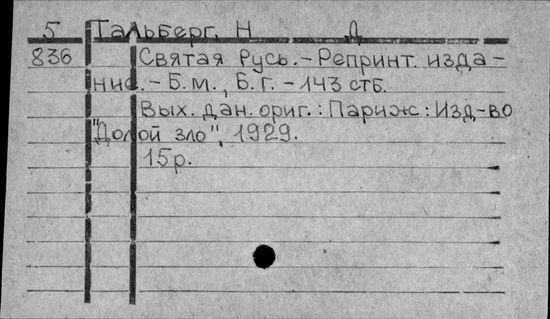 5 Тальберг, Н Д
836 Святая Русь.-Репринт. изда-
ние.-Б.м., Б.г.-143 стб.
Вых. дан. ориг.: Париж: Изд-во
"Долой зло", 1929.
15р.